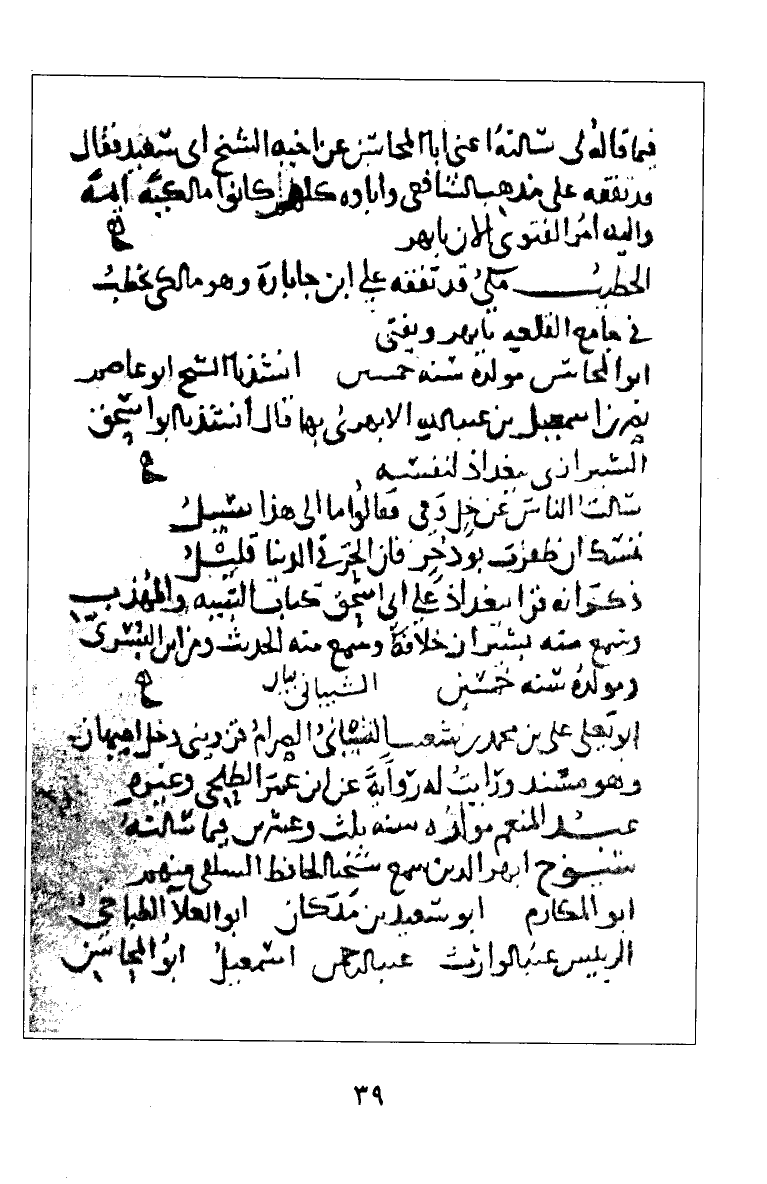 فيما قاله لي سالته اعني ابا المحاسن عن اخيه الشيخ ابي سعيد فقال
قد تفقه على مذهب الشافعي واباوه كلهم كانوا مالكية ايمة
واليه امر الفتوى الان بابهر
الخطيب مكي قد تفقه على ابن جابارة وهو مالكي يخطب
في جامع القلعه بابهر ويفتي
ابو المحاسن مولده سنه خمسين انشدنا الشيخ ابو عاصم
اسمعيل بن عبد الله الابهري بها قال انشدنا ابو اسحق
الشيرازي ببغداذ لنفسه
سالت الناس عن خل وفي فقالوا ما الى هذا سبيل
تمسك ان ظفرت بود حر فان الحر في الدنيا قليل
ذكر انه قرا ببغداذ على ابي اسحق كتاب التنبيه والمهذب
وسمع منه خلافه وسمع منه الحديث ومن ابن البسري
ومولده سنه خمسين الشيباني
ابو يعلى علي بن محمد بن شعيب الشيباني دخل اصبهان
وهو مسند ورايت له رواية عن ابن عمر الطلحي وغيره
عبد المنعم مولده سنه ثلث وعشرين فيما سالته
شيوخ ابهر الذين سمع شيخنا الحافظ السلفي منهم
ابو المكارم ابو سعيد بن ابو العلا
الرييس عبد الوارث عبد الرحمن اسمعيل ابو المحاسن
٣٩